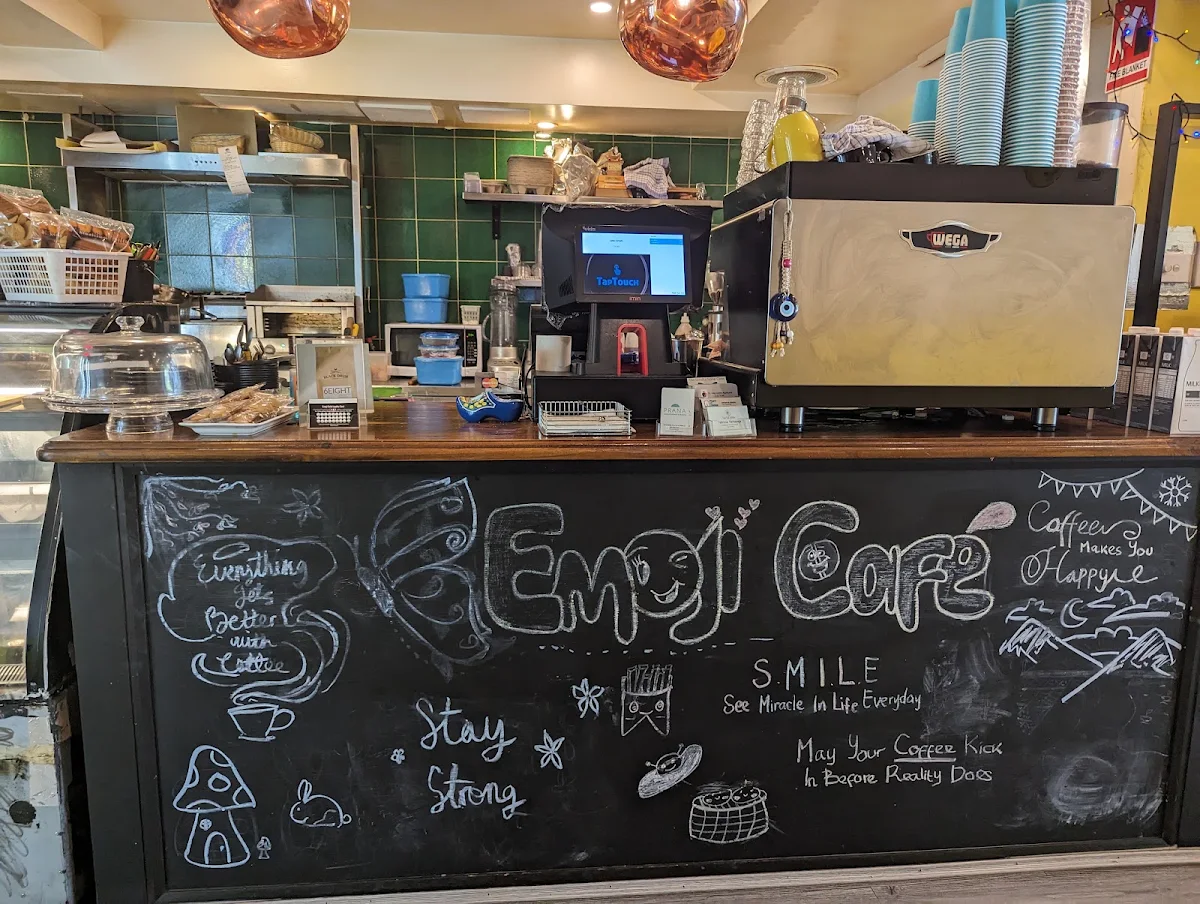 FIRE BLANKET
WEGA
TapTouch
imin
6EIGHT
PRANA
Emoji Café
Everything
gets
Better
with
Coffee
Coffee
Makes You
Happy
S.M.I.L.E
See Miracle In Life Everyday
Stay
Strong
May Your Coffee Kick
In Before Reality Does